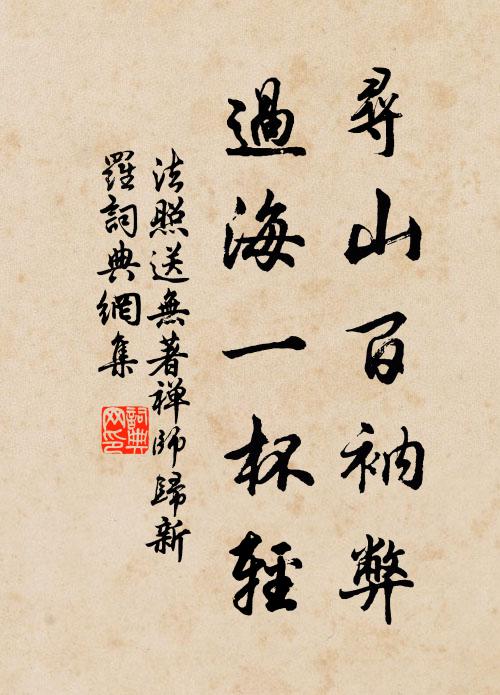 尋山百衲弊
過海一杯輕
法照送無著禪師歸新
羅詞典網集
詞典网印